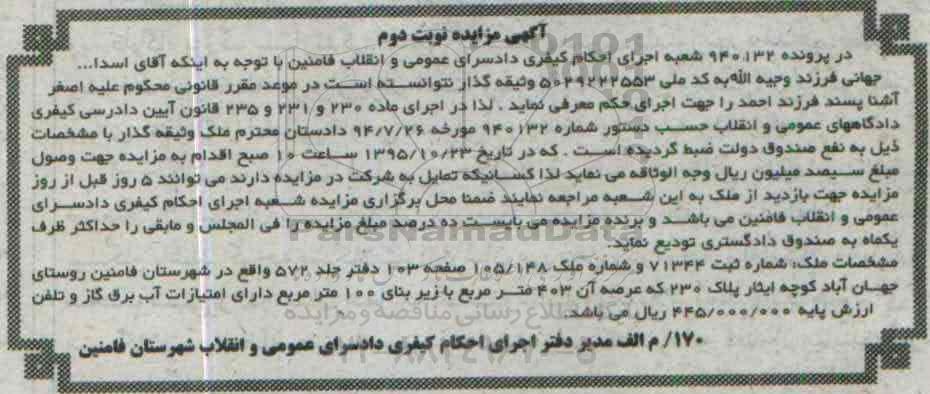 آگهی مزایده نوبت دوم
در پرونده ۹۴۰۱۳۲ شعبه اجرای احکام کیفری دادسرای عمومی و انقلاب فامنین با توجه به اینکه آقای اسدا...
جهانی فرزند وجیه الله به کد ملی ۵۰۲۹۲۲۲۵۵۳ وثیقه گذار نتوانسته است در موعد مقرر قانونی محکوم علیه اصغر
آشنا پسند فرزند احمد را جهت اجرای حکم معرفی نماید . لذا در اجرای ماده ۲۳۰ و ۲۳۱ و ۲۳۵ قانون آیین دادرسی کیفری
دادگاههای عمومی و انقلاب حسب دستور شماره ۹۴۰۱۳۲ مورخه ۹۴/۷/۲۶ دادستان محترم ملک وثیقه گذار با مشخصات
ذیل به نفع صندوق دولت ضبط گردیده است . که در تاریخ ۱۳۹۵/۱۰/۲۳ ساعت ۱۰ صبح اقدام به مزایده جهت وصول
مبلغ سیصد میلیون ریال وجه الوثاقه می نماید لذا کسانیکه تمایل به شرکت در مزایده دارند می توانند ۵ روز قبل از روز
مزایده جهت بازدید از ملک به این شعبه مراجعه نمایند ضمنا محل برگزاری مزایده شعبه اجرای احکام کیفری دادسرای
عمومی و انقلاب فامنین می باشد و برنده مزایده می بایست ده درصد مبلغ مزایده را فی المجلس و مابقی را حداکثر ظرف
یکماه به صندوق دادگستری تودیع نماید.
ParsNamadData
مشخصات ملک: شماره ثبت ۷۱۳۴۴ و شماره ملک ۱۰۵/۱۴۸ صفحه ۱۰۳ دفتر جلد ۵۷۲ واقع در شهرستان فامنین روستای
جهان آباد کوچه ایثار پلاک ۲۳۰ که عرصه آن ۴۰۳ متر مربع با زیر بنای ۱۰۰ متر مربع دارای امتیازات آب برق گاز و تلفن
ارزش پایه ۴۴۵/۰۰۰/۰۰۰ ریال می باشد.
۱۷۰/ م الف مدیر دفتر اجرای احکام کیفری دادسرای عمومی و انقلاب شهرستان فامنین